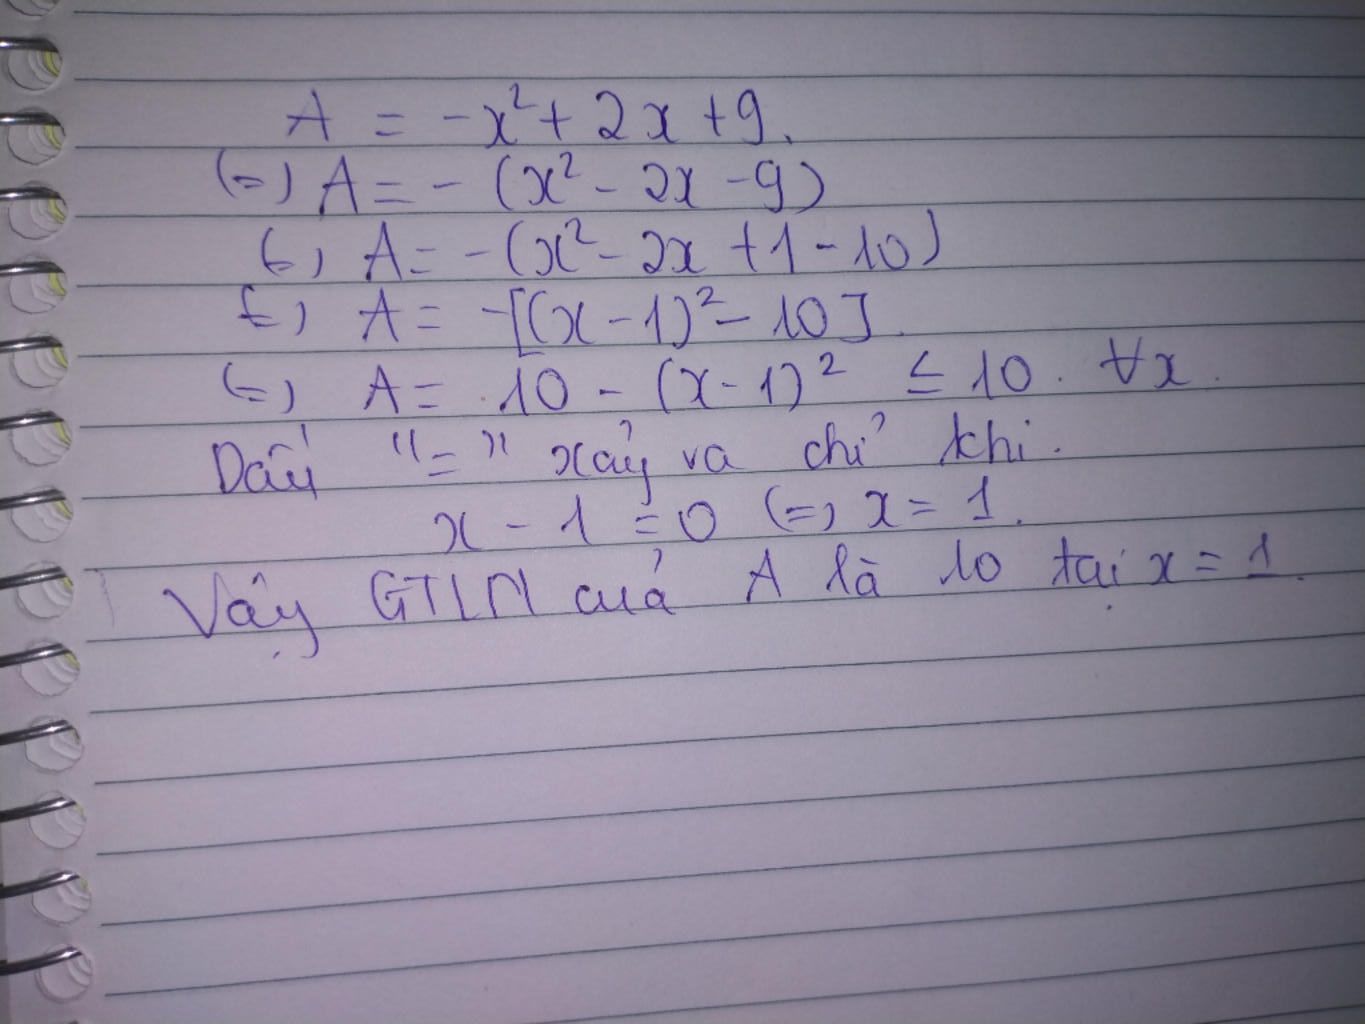 A = -x² + 2x + 9.
(=) A = - (x² - 2x - 9)
(=) A = - (x² - 2x + 1 - 10)
(=) A = -[(x - 1)² - 10].
(=) A = 10 - (x - 1)² ≤ 10. ∀x.
Dấu "=" xảy ra chỉ khi.
x - 1 = 0 (=) x = 1.
Vậy GTLN của A là 10 tại x = 1.